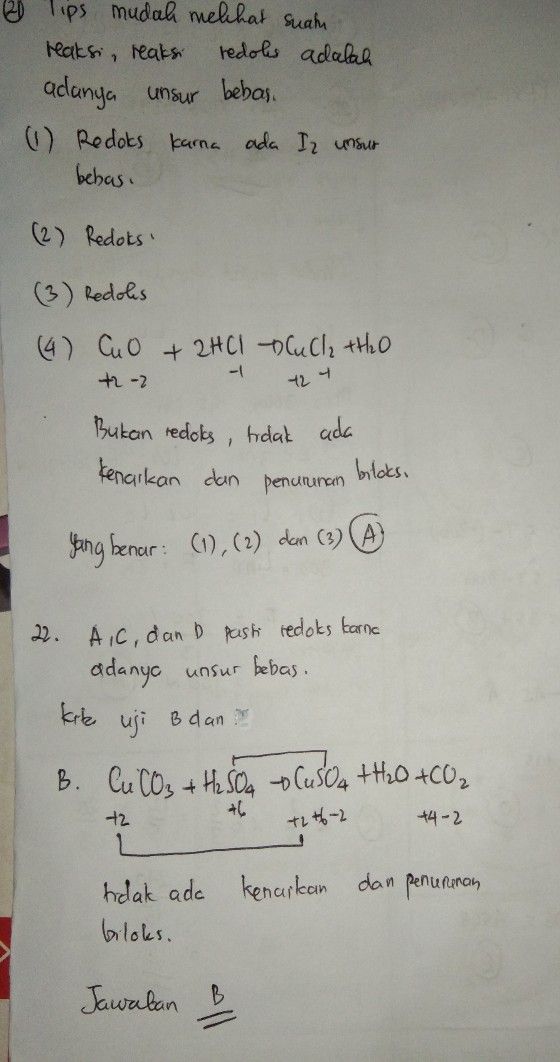 (21) Tips mudah melihat suatu
reaksi, reaksi redoks adalah
adanya unsur bebas.
(1) Redoks karna ada I₂ unsur
bebas.
(2) Redoks.
(3) Redoks
(4) CuO + 2HCl → CuCl₂ + H₂O
+2 -2 -1 +2 -1
Bukan redoks, tidak ada
kenaikan dan penurunan biloks.
Yang benar: (1), (2) dan (3) (A)
22. A, C, dan D pasti redoks karna
adanya unsur bebas.
kita uji B dan
B. CuCO₃ + H₂SO₄ → CuSO₄ + H₂O + CO₂
+2 +6 +2 +6 -2 +4 -2
tidak ada kenaikan dan penurunan
biloks.
Jawaban B